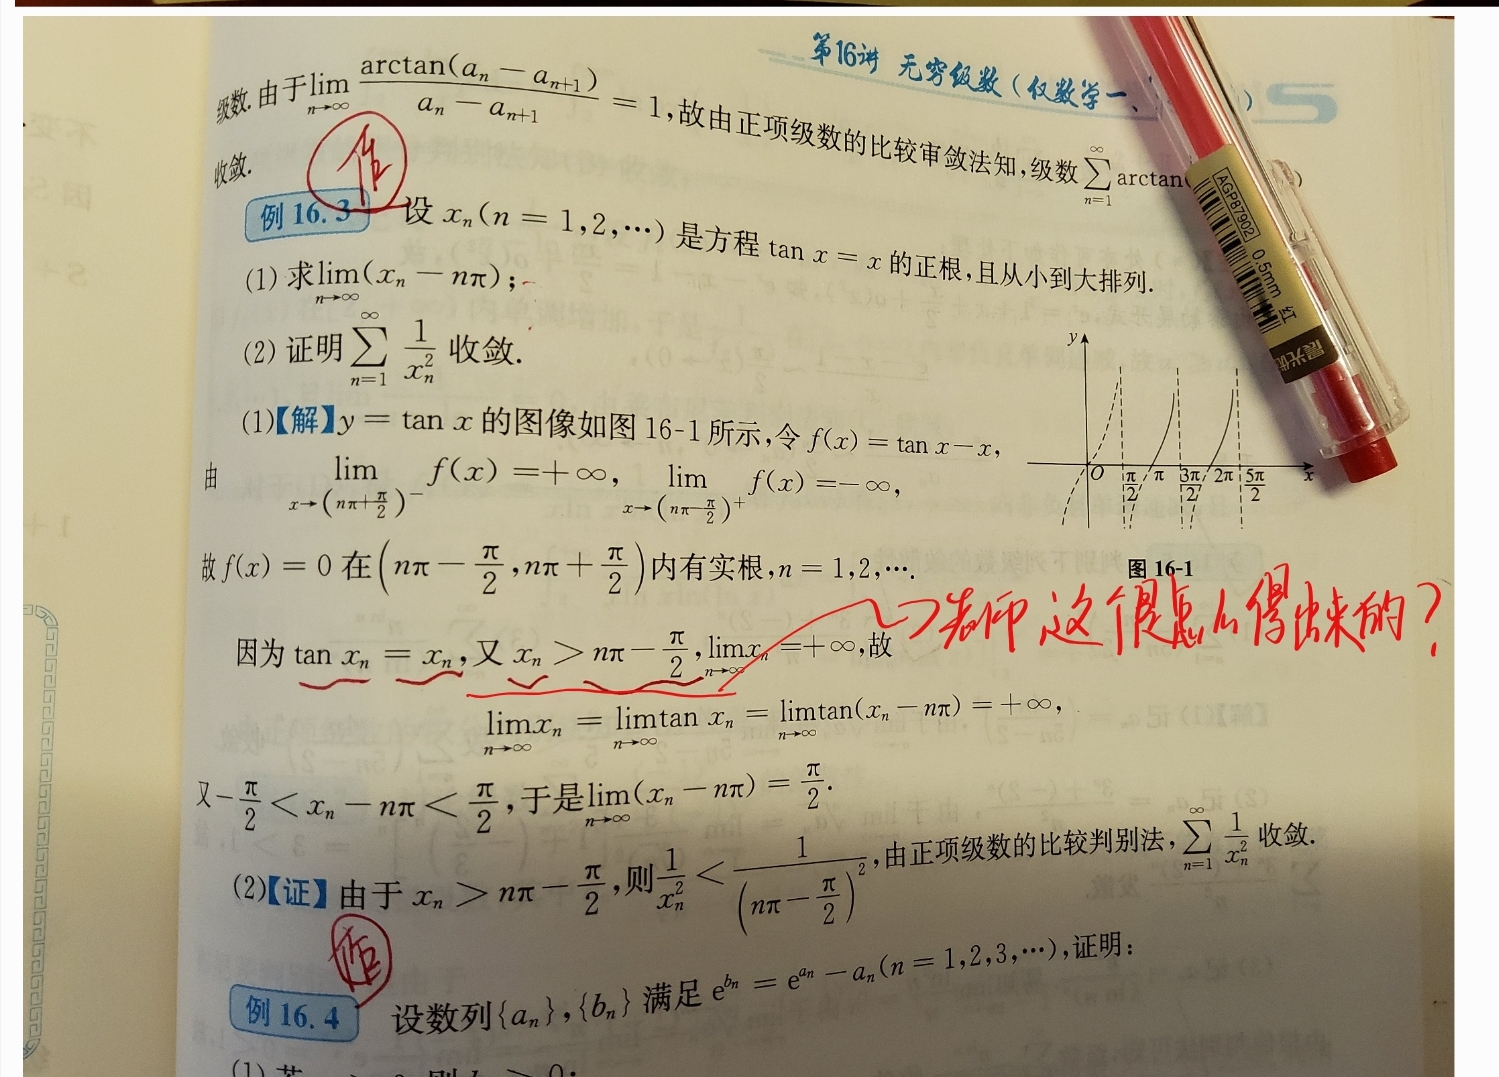 第16讲 无穷级数(仅数学一、
级数.由于lim_{n→∞} arctan(a_n − a_{n+1}) / (a_n − a_{n+1}) = 1,故由正项级数的比较审敛法知,级数∑_{n=1}^{∞} arctan(
收敛.
例 16.3 设 x_n(n = 1,2,⋯) 是方程 tan x = x 的正根,且从小到大排列.
(1) 求lim_{n→∞}(x_n − nπ);
(2) 证明∑_{n=1}^{∞} 1/x_n^2 收敛.
(1)【解】y = tan x 的图像如图 16-1 所示,令 f(x) = tan x − x,
由 lim_{x→(nπ+π/2)^−} f(x) = +∞, lim_{x→(nπ−π/2)^+} f(x) = −∞,
故 f(x) = 0 在(nπ − π/2, nπ + π/2)内有实根,n = 1,2,⋯.
y
O π/2 π 3π/2 2π 5π/2 x
图 16-1
老师 这个是怎么得出来的?
因为 tan x_n = x_n,又 x_n > nπ − π/2, lim_{n→∞} x_n = +∞,故
lim_{n→∞} x_n = lim_{n→∞} tan x_n = lim_{n→∞} tan(x_n − nπ) = +∞,
又 −π/2 < x_n − nπ < π/2,于是lim_{n→∞}(x_n − nπ) = π/2.
(2)【证】由于 x_n > nπ − π/2,则 1/x_n^2 < 1/(nπ − π/2)^2,由正项级数的比较判别法,∑_{n=1}^{∞} 1/x_n^2 收敛.
例 16.4 设数列{a_n},{b_n} 满足 e^{b_n} = e^{a_n} − a_n(n = 1,2,3,⋯),证明:
AGP87902 0.5mm 红
晨光